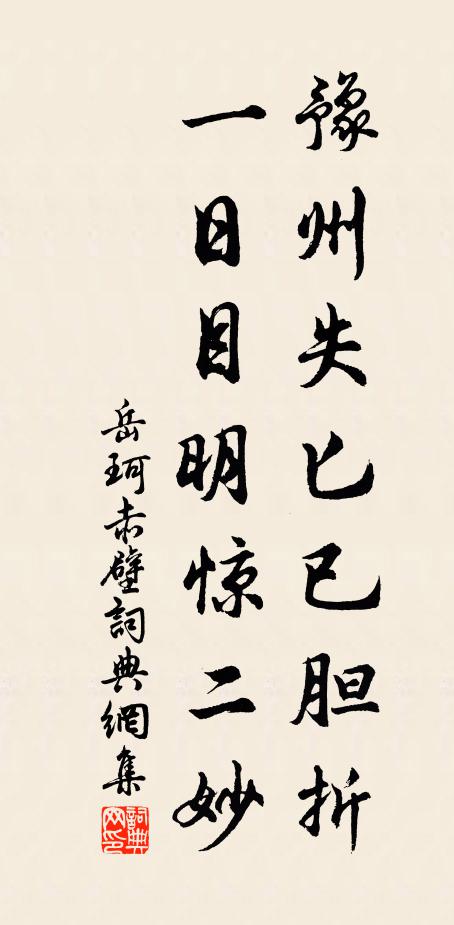 豫州失匕已胆折
一日目明惊二妙
岳珂赤壁詞典網集
詞典网印